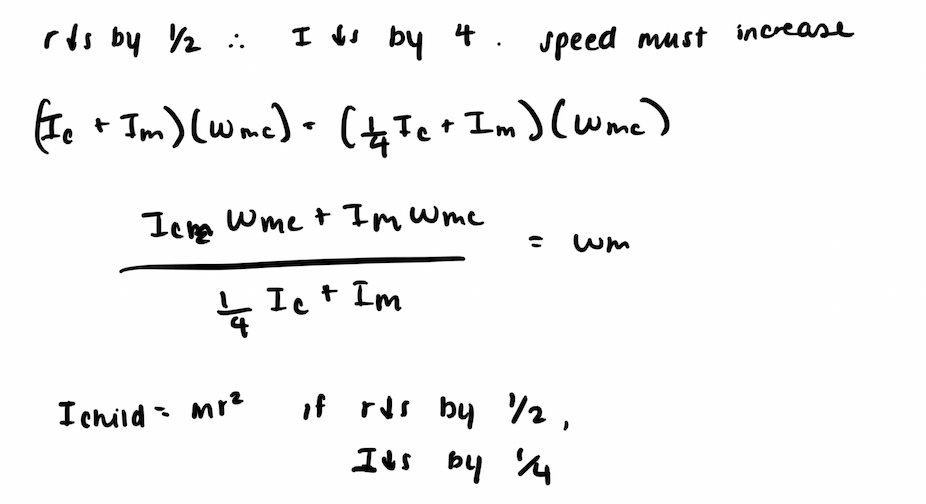 r↓s by 1/2 ∴ I ↓s by 4 . speed must increase
(Ic + Im)(ωmc) = (1/4 Ic + Im)(ωmc)
Ic ωmc + Im ωmc
= ωm
1/4 Ic + Im
Ichild = mr² if r↓s by 1/2,
I↓s by 1/4